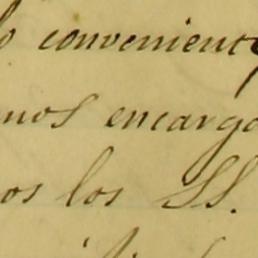 lo conveniente
mos encarga
os los SS.